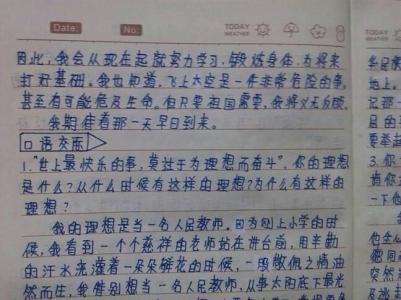 Date: No: TODAY WEATHER
因此,我会从现在起就努力学习,锻炼身体,为将来
打好基础。我也知道,飞上太空是一件非常危险的事,
甚至有可能危及生命。但只要祖国需要,我将义无反顾。
我期待着那一天早日到来。
口语交际
1."世上最快乐的事,莫过于为理想而奋斗"。你的理想
是什么?从什么时候有这样的理想?为什么有这样的
理想?
我的理想是当一名人民教师。因为刚上小学的时
候,我看到一个个慈祥的老师站在讲台前,用辛勤
的汗水浇灌着一朵朵鲜花的时候,一股敬佩之情油
然而生,我特别想当一名人民教师,从事太阳底下最光
TODAY
WEATHER
地上。
记那一
3.你
一下他